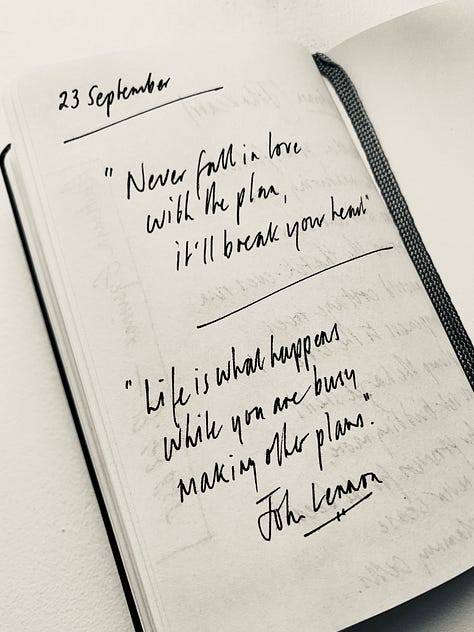 23 September
"Never fall in love
with the plan,
it'll break your heart"
"Life is what happens
while you are busy
making other plans".
John Lennon